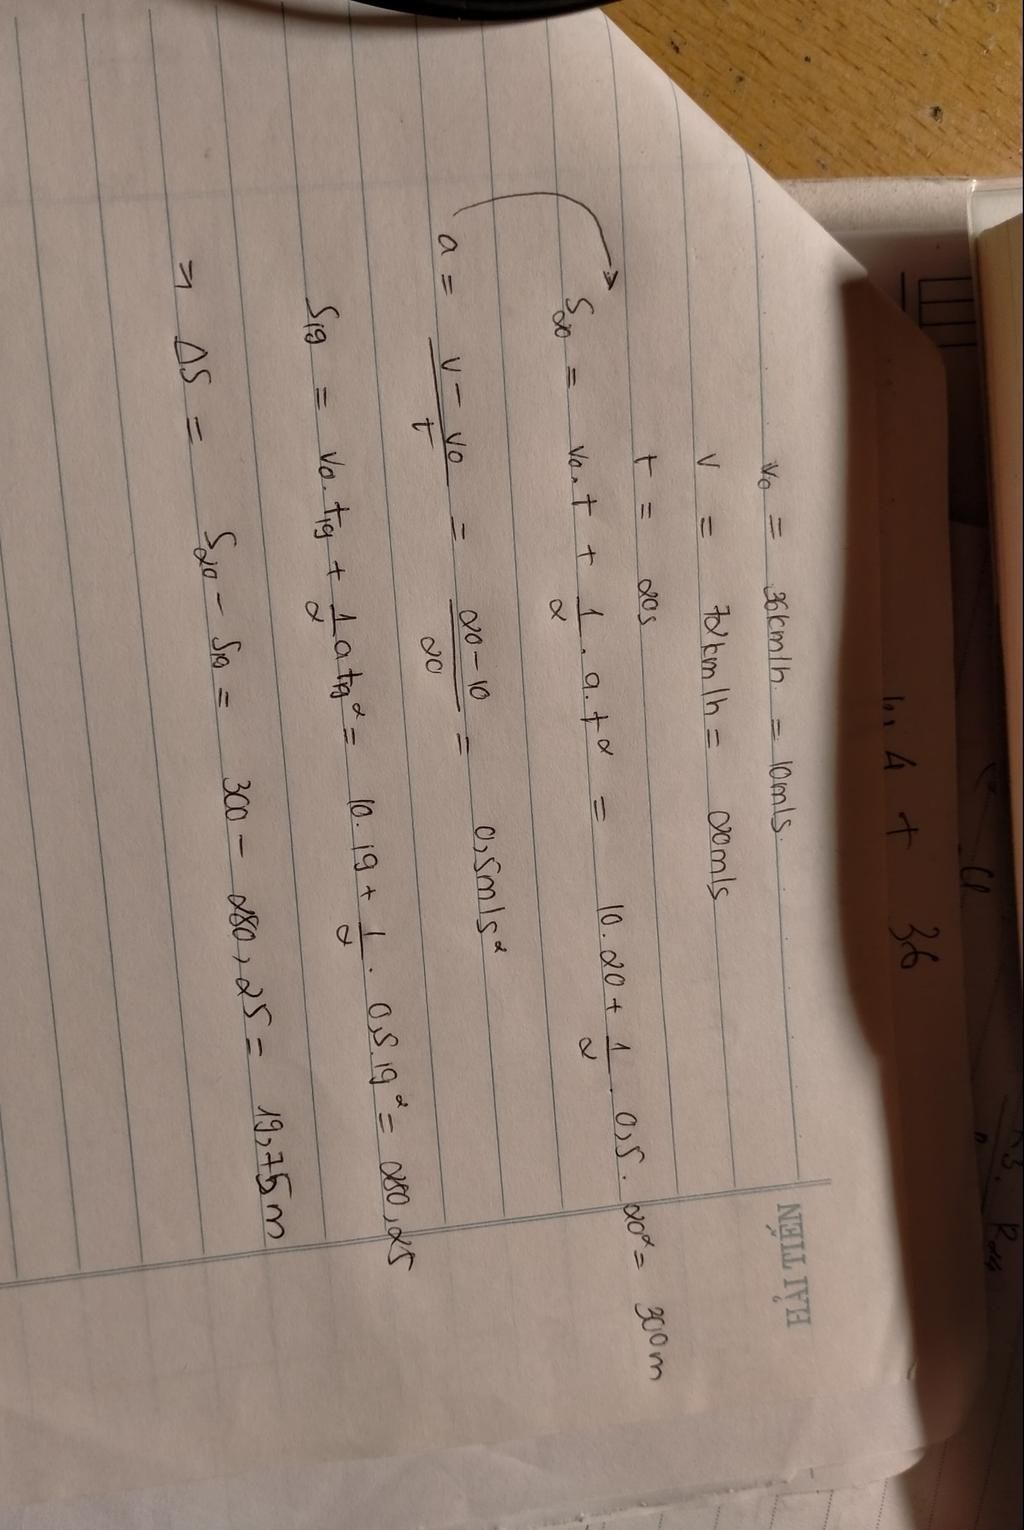 HẢI TIẾN
v₀ = 36km/h. = 10m/s.
v = 72km/h = 20m/s
t = 20s
S₂₀ = v₀.t + 1/2 . a. t² = 10.20 + 1/2 . 0,5. 20² = 300m
a = (v - v₀)/t = (20-10)/20 = 0,5m/s²
S₁₉ = v₀.t₁₉ + 1/2 a t₁₉² = 10.19 + 1/2 . 0,5.19² = 280,25
=> ΔS = S₂₀ - S₁₉ = 300 - 280,25 = 19,75m
4 + 36